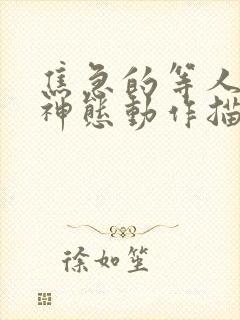 焦急的等人
神態動作描
徐如笙